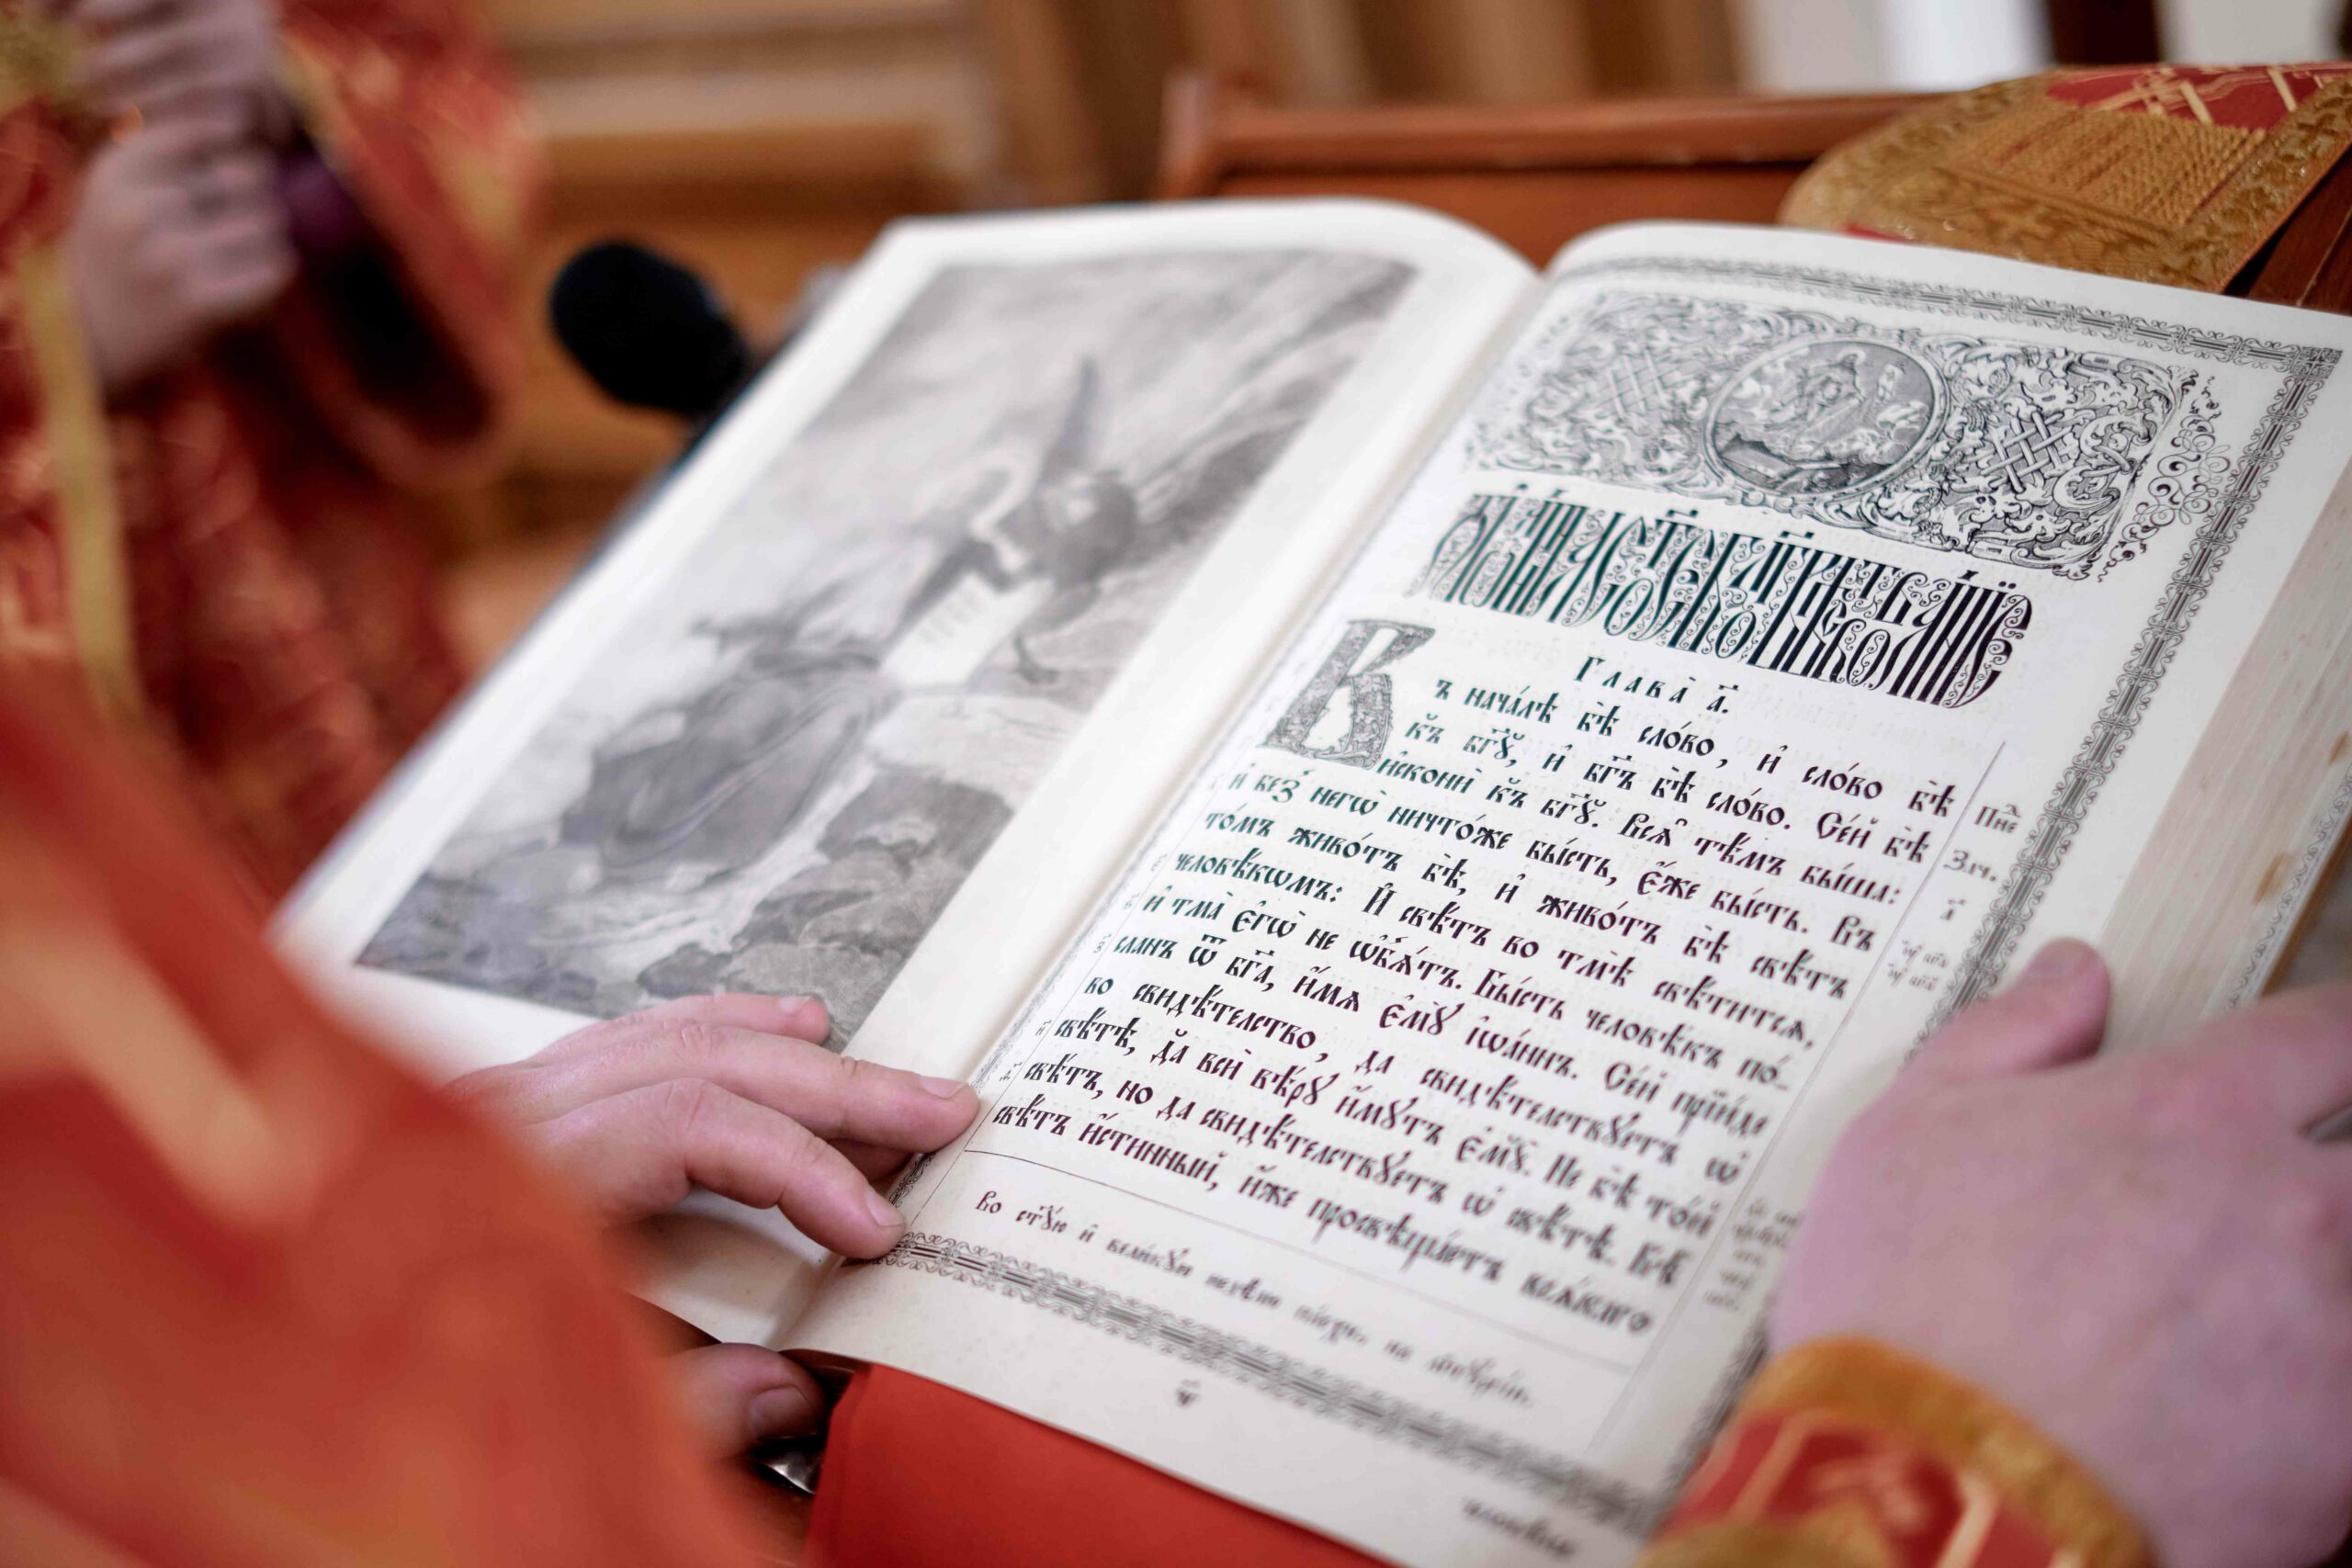 Глава̀ а҃.
Въ нача́лѣ бѣ̀ сло́во, и҆ сло́во бѣ̀
къ бг҃ꙋ, и҆ бг҃ъ бѣ̀ сло́во. Се́й бѣ̀
и҆сконѝ къ бг҃ꙋ. Всѧ̑ тѣ́мъ бы́ша:
и҆ без̾ негѡ̀ ничто́же бы́сть, є҆́же бы́сть. Въ
то́мъ живо́тъ бѣ̀, и҆ живо́тъ бѣ̀ свѣ́тъ
человѣ́кѡмъ: И҆ свѣ́тъ во тмѣ̀ свѣ́титсѧ,
и҆ тма̀ є҆гѡ̀ не ѡ҆б̾ѧ́тъ. Бы́сть человѣ́къ по́-
сланъ ѿ бг҃а, и҆́мѧ є҆мꙋ̀ і҆ѡа́ннъ. Се́й прїи́де
во свидѣ́телство, да свидѣ́телствꙋетъ ѡ҆
свѣ́тѣ, да всѝ вѣ́рꙋ и҆́мꙋтъ є҆мꙋ̀. Не бѣ̀ то́й
свѣ́тъ, но да свидѣ́телствꙋетъ ѡ҆ свѣ́тѣ. Бѣ̀
свѣ́тъ и҆́стинный, и҆́же просвѣща́етъ всѧ́каго
Зач.
а҃
Во ст҃ꙋ́ю и҆ вели́кꙋю недѣ́лю па́схи, на лїтꙋргі́и.